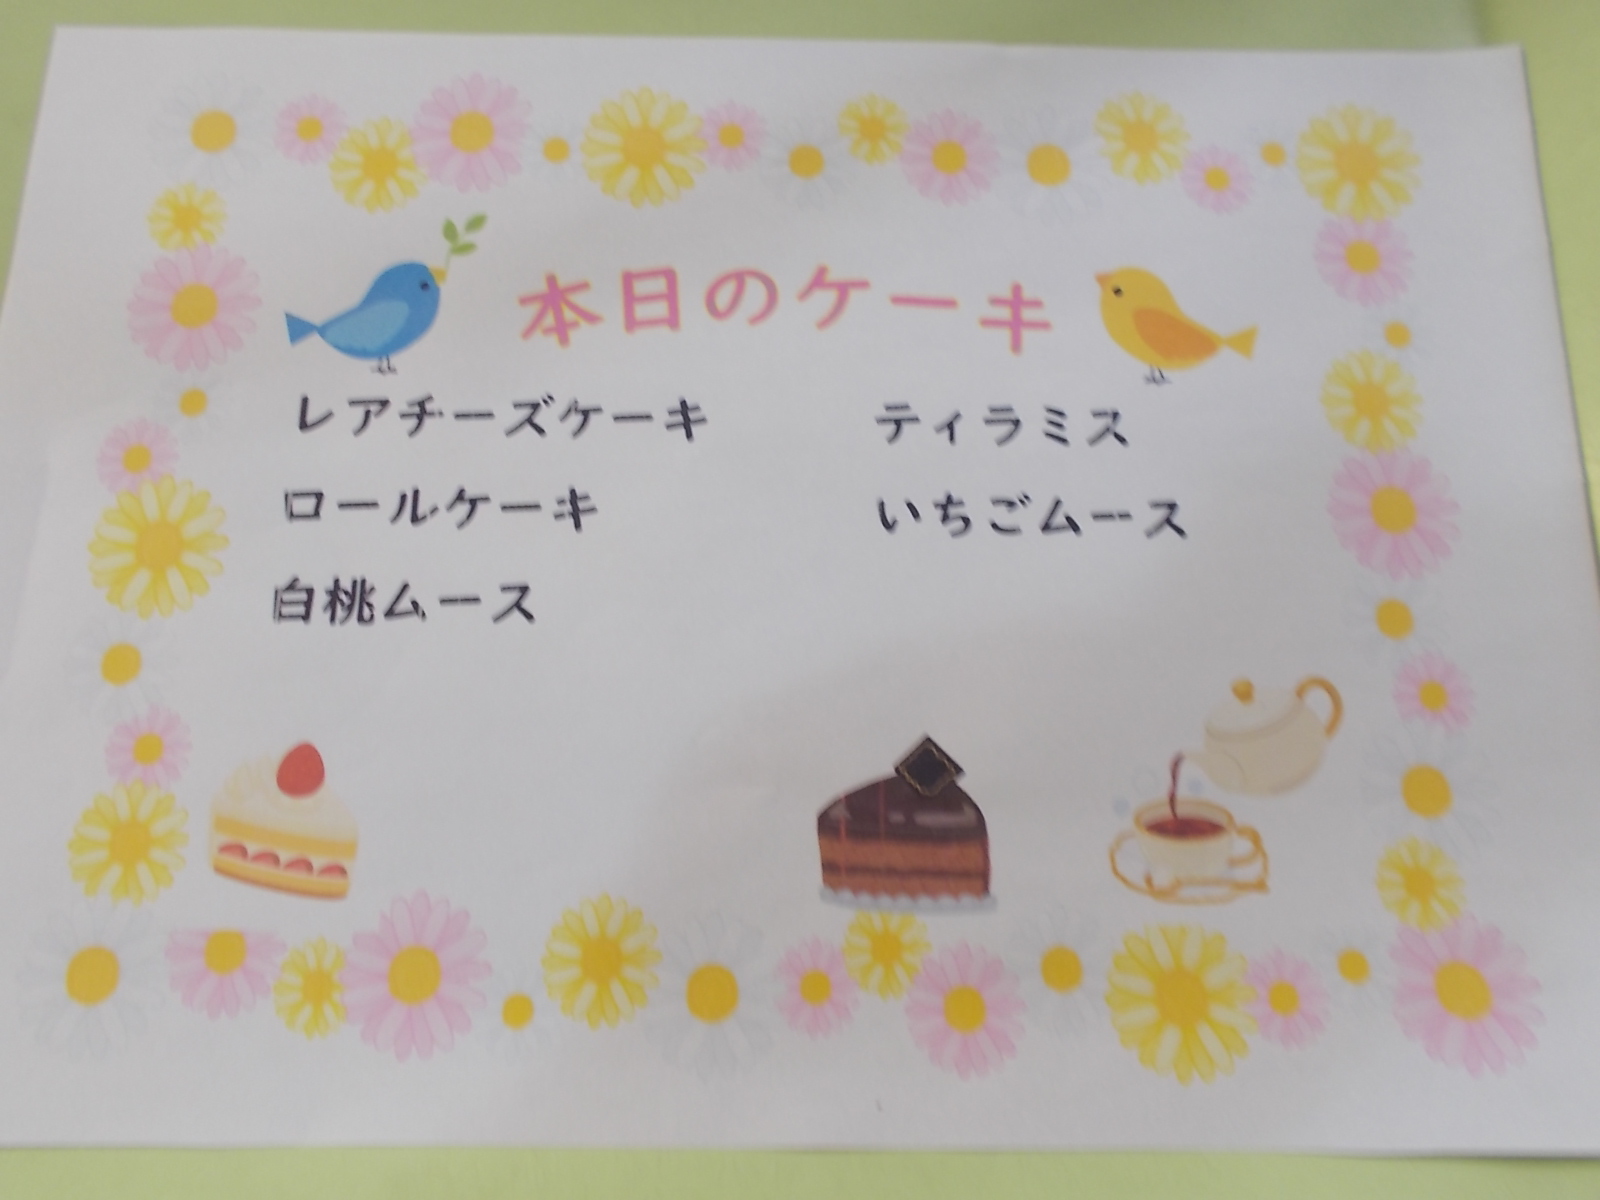 本日のケーキ
レアチーズケーキ
ティラミス
ロールケーキ
いちごムース
白桃ムース